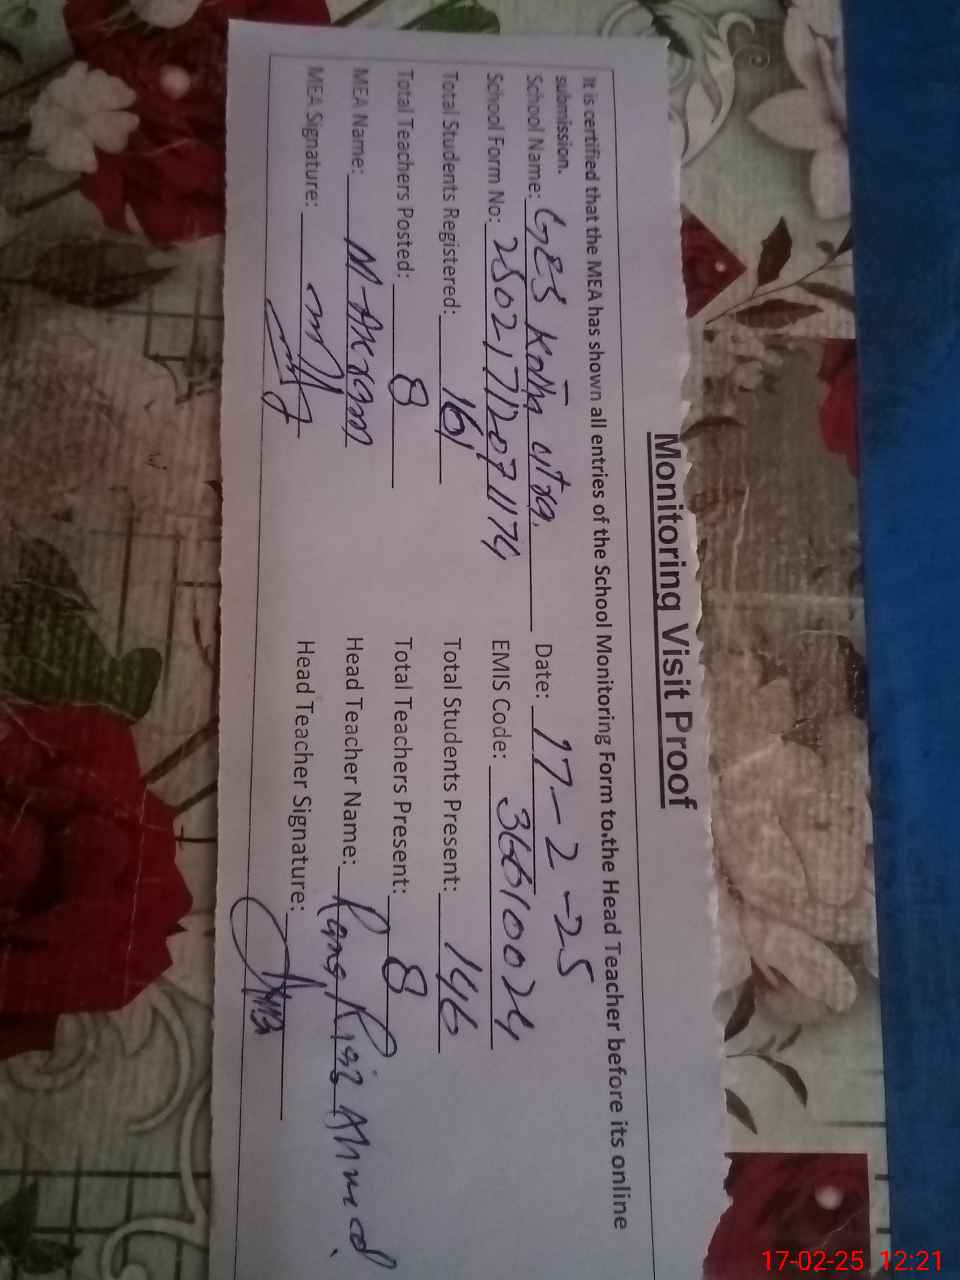 Monitoring Visit Proof
It is certified that the MEA has shown all entries of the School Monitoring Form to the Head Teacher before its online
submission.
School Name: GES Kotha Date: 17-2-25
School Form No: 2502171207 1174 EMIS Code: 36610024
Total Students Registered: 161 Total Students Present: 146
Total Teachers Posted: 8 Total Teachers Present: 8
MEA Name: M-Akram Head Teacher Name: Rana Riaz Ahmed.
MEA Signature: Head Teacher Signature:
17-02-25 12:21